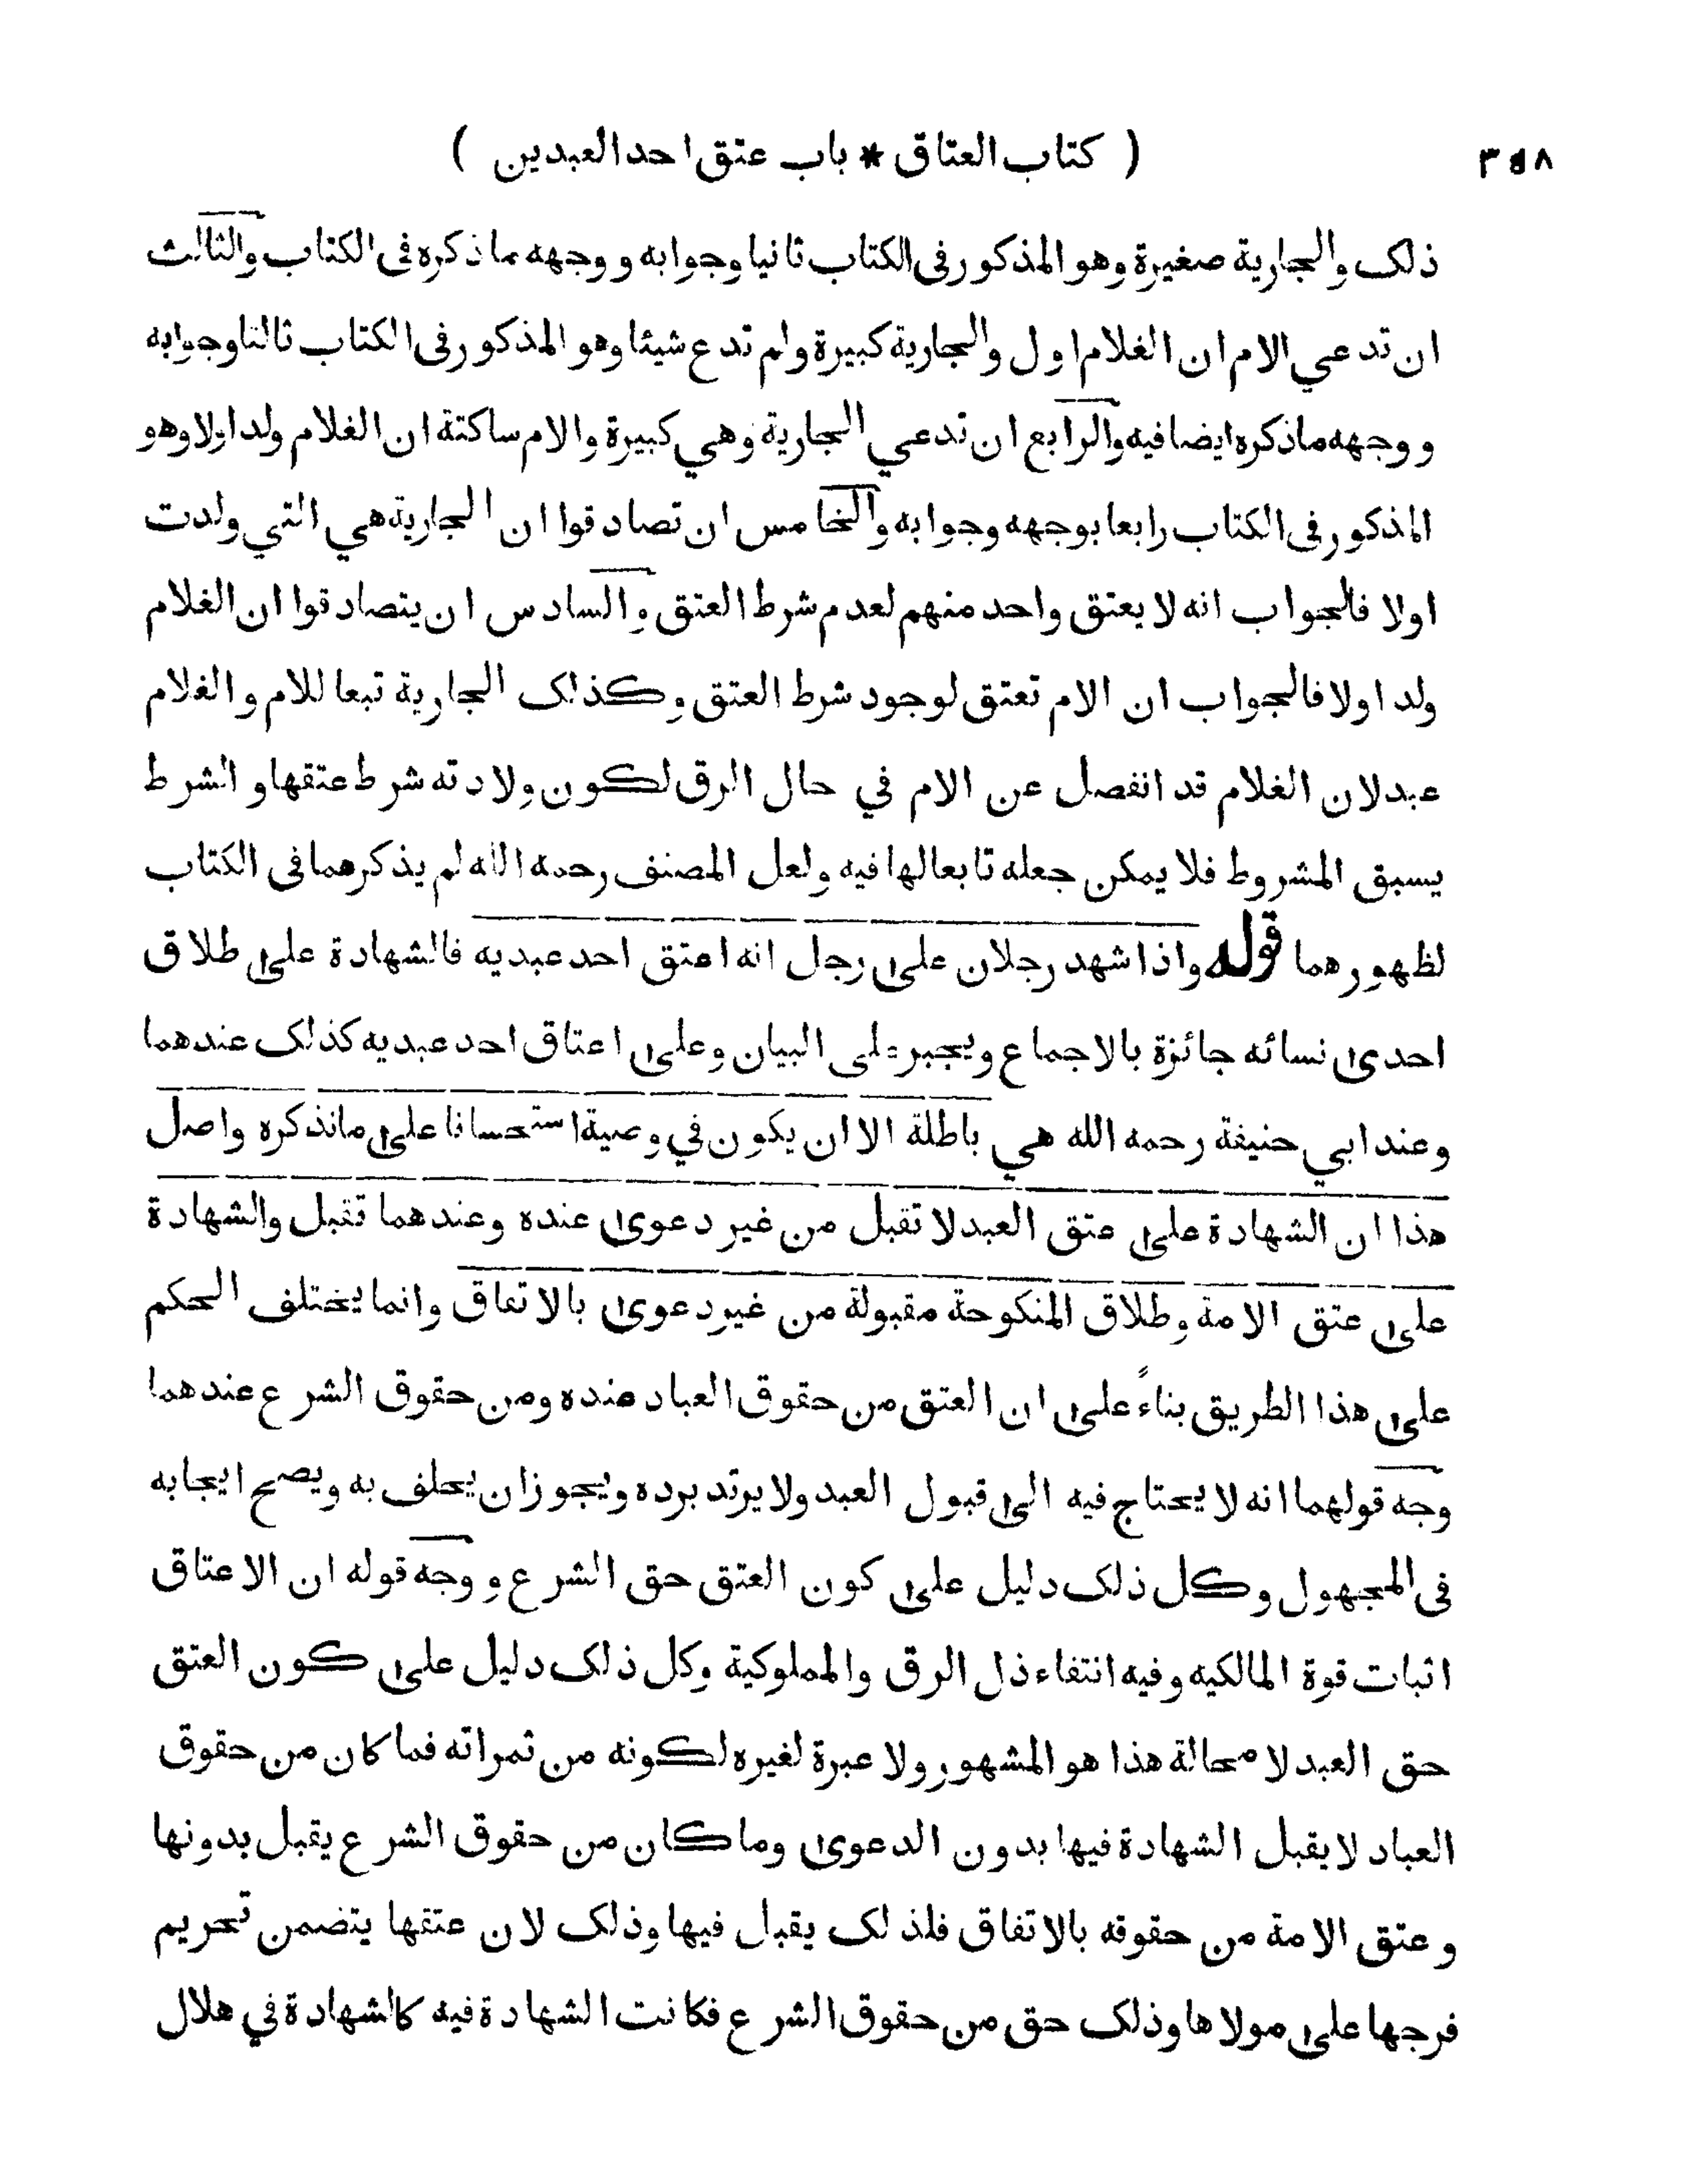 ( كتاب العتاق * باب عتق احد العبدين )
ذلك والجارية صغيرة وهو المذكور في الكتاب ثانيا وجوابه ووجهه ما ذكره في الكتاب والثالث
ان تدعي الام ان الغلام اول والجارية كبيرة ولم تدع شيئا وهو المذكور في الكتاب ثالثا وجوابه
ووجهه ماذكره ايضا فيه والرابع ان تدعي الجارية وهي كبيرة والام ساكتة ان الغلام ولد اولا وهو
المذكور في الكتاب رابعا بوجهه وجوابه والخامس ان تصادقوا ان الجارية هي التي ولدت
اولا فالجواب انه لا يعتق واحد منهم لعدم شرط العتق والسادس ان يتصادقوا ان الغلام
ولد اولا فالجواب ان الام تعتق لوجود شرط العتق وكذلك الجارية تبعا للام والغلام
عبد لان الغلام قد انفصل عن الام في حال الرق لكون ولادته شرط عتقها والشرط
يسبق المشروط فلا يمكن جعله تابعا لها فيه ولعل المصنف رحمه الله لم يذكرهما في الكتاب
لظهورهما قوله واذا شهد رجلان على رجل انه اعتق احد عبديه فالشهادة على طلاق
احدى نسائه جائزة بالاجماع ويجبر على البيان وعلى اعتاق احد عبديه كذلك عندهما
وعند ابي حنيفة رحمه الله هي باطلة الا ان يكون في وصية استحسانا على ما نذكره واصل
هذا ان الشهادة على عتق العبد لا تقبل من غير دعوى عنده وعندهما تقبل والشهادة
على عتق الامة وطلاق المنكوحة مقبولة من غير دعوى بالاتفاق وانما يختلف الحكم
على هذا الطريق بناءً على ان العتق من حقوق العباد عنده ومن حقوق الشرع عندهما
وجه قولهما انه لا يحتاج فيه الى قبول العبد ولا يرتد برده ويجوز ان يحلف به ويصح ايجابه
في المجهول وكل ذلك دليل على كون العتق حق الشرع ووجه قوله ان الاعتاق
اثبات قوة المالكيه وفيه انتفاء ذل الرق والمملوكية وكل ذلك دليل على كون العتق
حق العبد لا محالة هذا هو المشهور ولا عبرة لغيره لكونه من ثمراته فما كان من حقوق
العباد لا يقبل الشهادة فيها بدون الدعوى وما كان من حقوق الشرع يقبل بدونها
وعتق الامة من حقوقه بالاتفاق فلذلك يقبل فيها وذلك لان عتقها يتضمن تحريم
فرجها على مولاها وذلك حق من حقوق الشرع فكانت الشهادة فيه كالشهادة في هلال